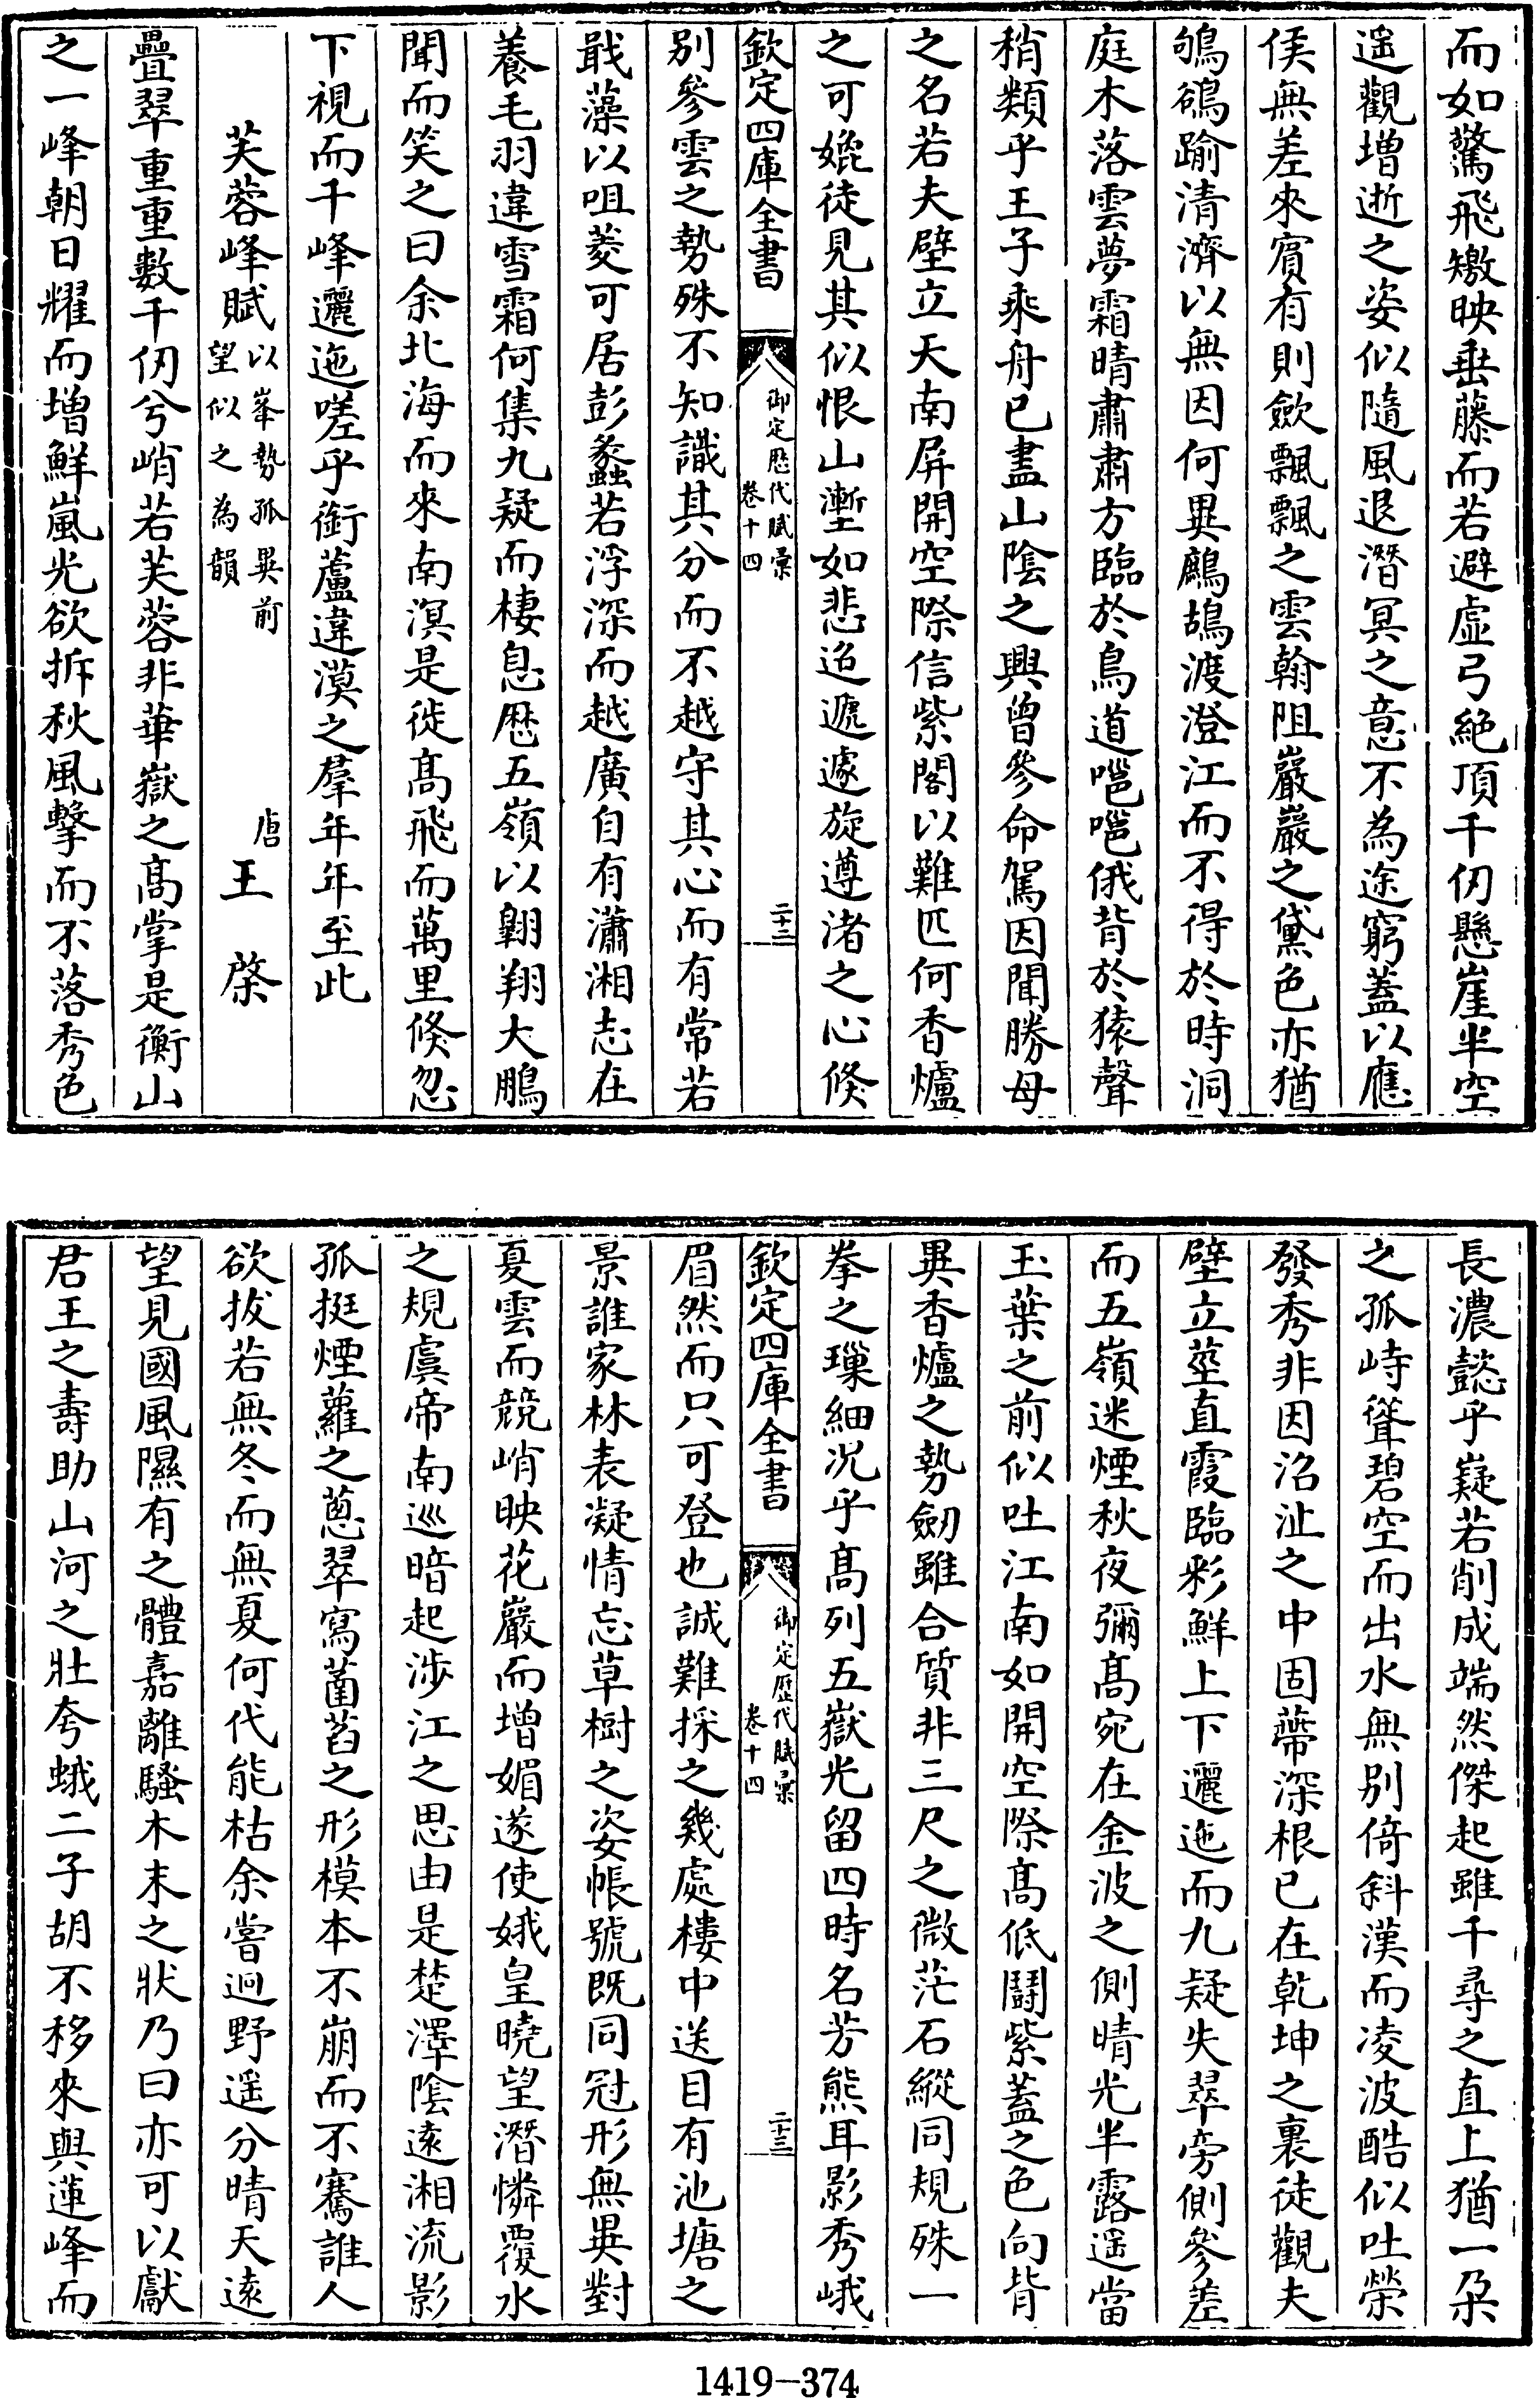 而如驚飛繳映垂藤而若避虚弓絶頂千仞懸崖半空
遥觀增逝之姿似隨風退潛冥之意不為途窮蓋以應
侯無差來賓有則歛飄飄之雲翰阻巖巖之黛色亦猶
鴝鵒踰清濟以無因何異鷓鴣渡澄江而不得於時洞
庭木落雲夢霜晴肅肅方臨於鳥道嗈嗈俄背於猿聲
稍類乎王子乘舟已盡山陰之興曾參命駕因聞勝母
之名若夫壁立天南屏開空際信紫閣以難匹何香爐
之可媲徒見其似恨山壍如悲迢遞遽旋遵渚之心倐
欽定四庫全書
御定歴代賦彙
卷十四
二十三
别參雲之勢殊不知識其分而不越守其心而有常若
戢藻以咀菱可居彭蠡若浮深而越廣自有瀟湘志在
養毛羽違雪霜何集九疑而棲息歴五嶺以翺翔大鵬
聞而笑之曰余北海而來南溟是徙髙飛而萬里倐忽
下視而千峰邐迤嗟乎銜蘆違漠之羣年年至此
芙蓉峰賦
以峯勢孤異前
望似之為韻
唐
王棨
疊翠重重數千仞兮峭若芙蓉非華嶽之髙掌是衡山
之一峰朝日耀而增鮮嵐光欲拆秋風擊而不落秀色
長濃懿乎嶷若削成端然傑起雖千尋之直上猶一朶
之孤峙聳碧空而出水無别倚斜漢而凌波酷似吐榮
發秀非因沼沚之中固蔕深根已在乾坤之裏徒觀夫
壁立莖直霞臨彩鮮上下邐迤而九疑失翠旁側參差
而五嶺迷煙秋夜彌髙宛在金波之側晴光半露遥當
玉葉之前似吐江南如開空際髙低鬬紫蓋之色向背
異香爐之勢劒雖合質非三尺之微茫石縱同規殊一
拳之璅細况乎髙列五嶽光留四時名芳熊耳影秀峨
欽定四庫全書
御定歴代賦彙
卷十四
二十三
眉然而只可登也誠難採之幾處樓中送目有池塘之
景誰家林表凝情忘草樹之姿帳號既同冠形無異對
夏雲而競峭映花巖而增媚遂使娥皇曉望潛憐覆水
之規虞帝南巡暗起涉江之思由是楚澤陰逺湘流影
孤挺煙蘿之蔥翠寫菡萏之形模本不崩而不騫誰人
欲拔若無冬而無夏何代能枯余嘗迥野遥分晴天逺
望見國風隰有之體嘉離騷木末之狀乃曰亦可以獻
君王之壽助山河之壯夸蛾二子胡不移來與蓮峰而
1419-374